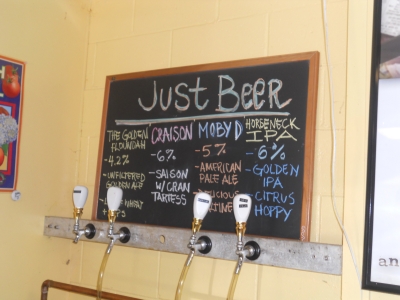 JUST BEER
THE GOLDEN
FLOUNDAH
-4.2%
-UNFILTERED
GOLDEN ALE
CRAISON
-6%
-SAISON
W/ CRAN
TARTNESS
MOBY D
-5%
-AMERICAN
PALE ALE
HORSENECK
IPA
-6%
-GOLDEN
IPA
-CITRUS
HOPPY
an